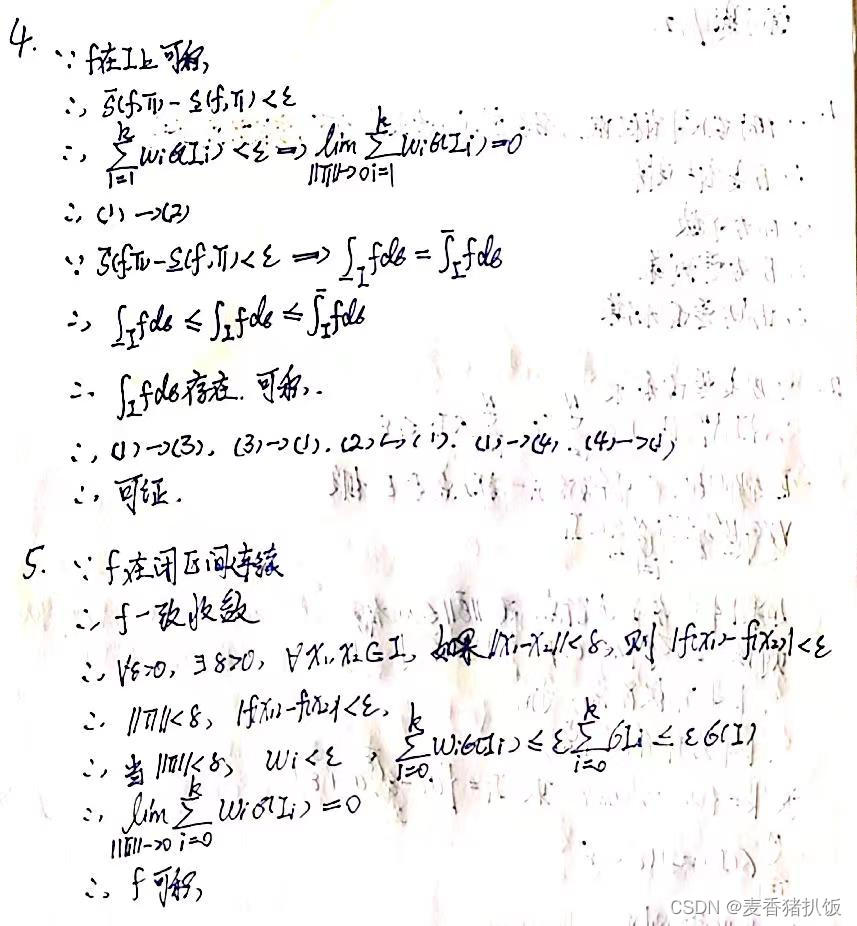 4. ∵ f在I上可积,
∴ S̄(f,π)-S̲(f,π)<ε
∴ Σ_{i=1}^{k} wiσ(Ii)<ε ⇒ lim_{||π||→0} Σ_{i=1}^{k} wiσ(Ii)=0
∴ (1)→(2)
∵ S̄(f,π)-S̲(f,π)<ε ⇒ ∫̲_I fdσ = ∫̄_I fdσ
∴ ∫̲_I fdσ ≤ ∫_I fdσ ≤ ∫̄_I fdσ
∴ ∫_I fdσ 存在. 可积.
∴ (1)→(3), (3)→(1). (2)→(1). (1)→(4). (4)→(1)
∴ 可证.
5. ∵ f在闭区间连续
∴ f一致收敛
∴ ∀ε>0, ∃δ>0, ∀x1,x2∈I, 如果||x1-x2||<δ, 则|f(x1)-f(x2)|<ε
∴ ||π||<δ, |f(x1)-f(x2)|<ε,
∴ 当||π||<δ, wi<ε, Σ_{i=0}^{k} wiσ(Ii)≤εΣ_{i=0}^{k} σIi≤εσ(I)
∴ lim_{||π||→0} Σ_{i=0}^{k} wiσ(Ii)=0
∴ f可积,
CSDN @麦香猪扒饭